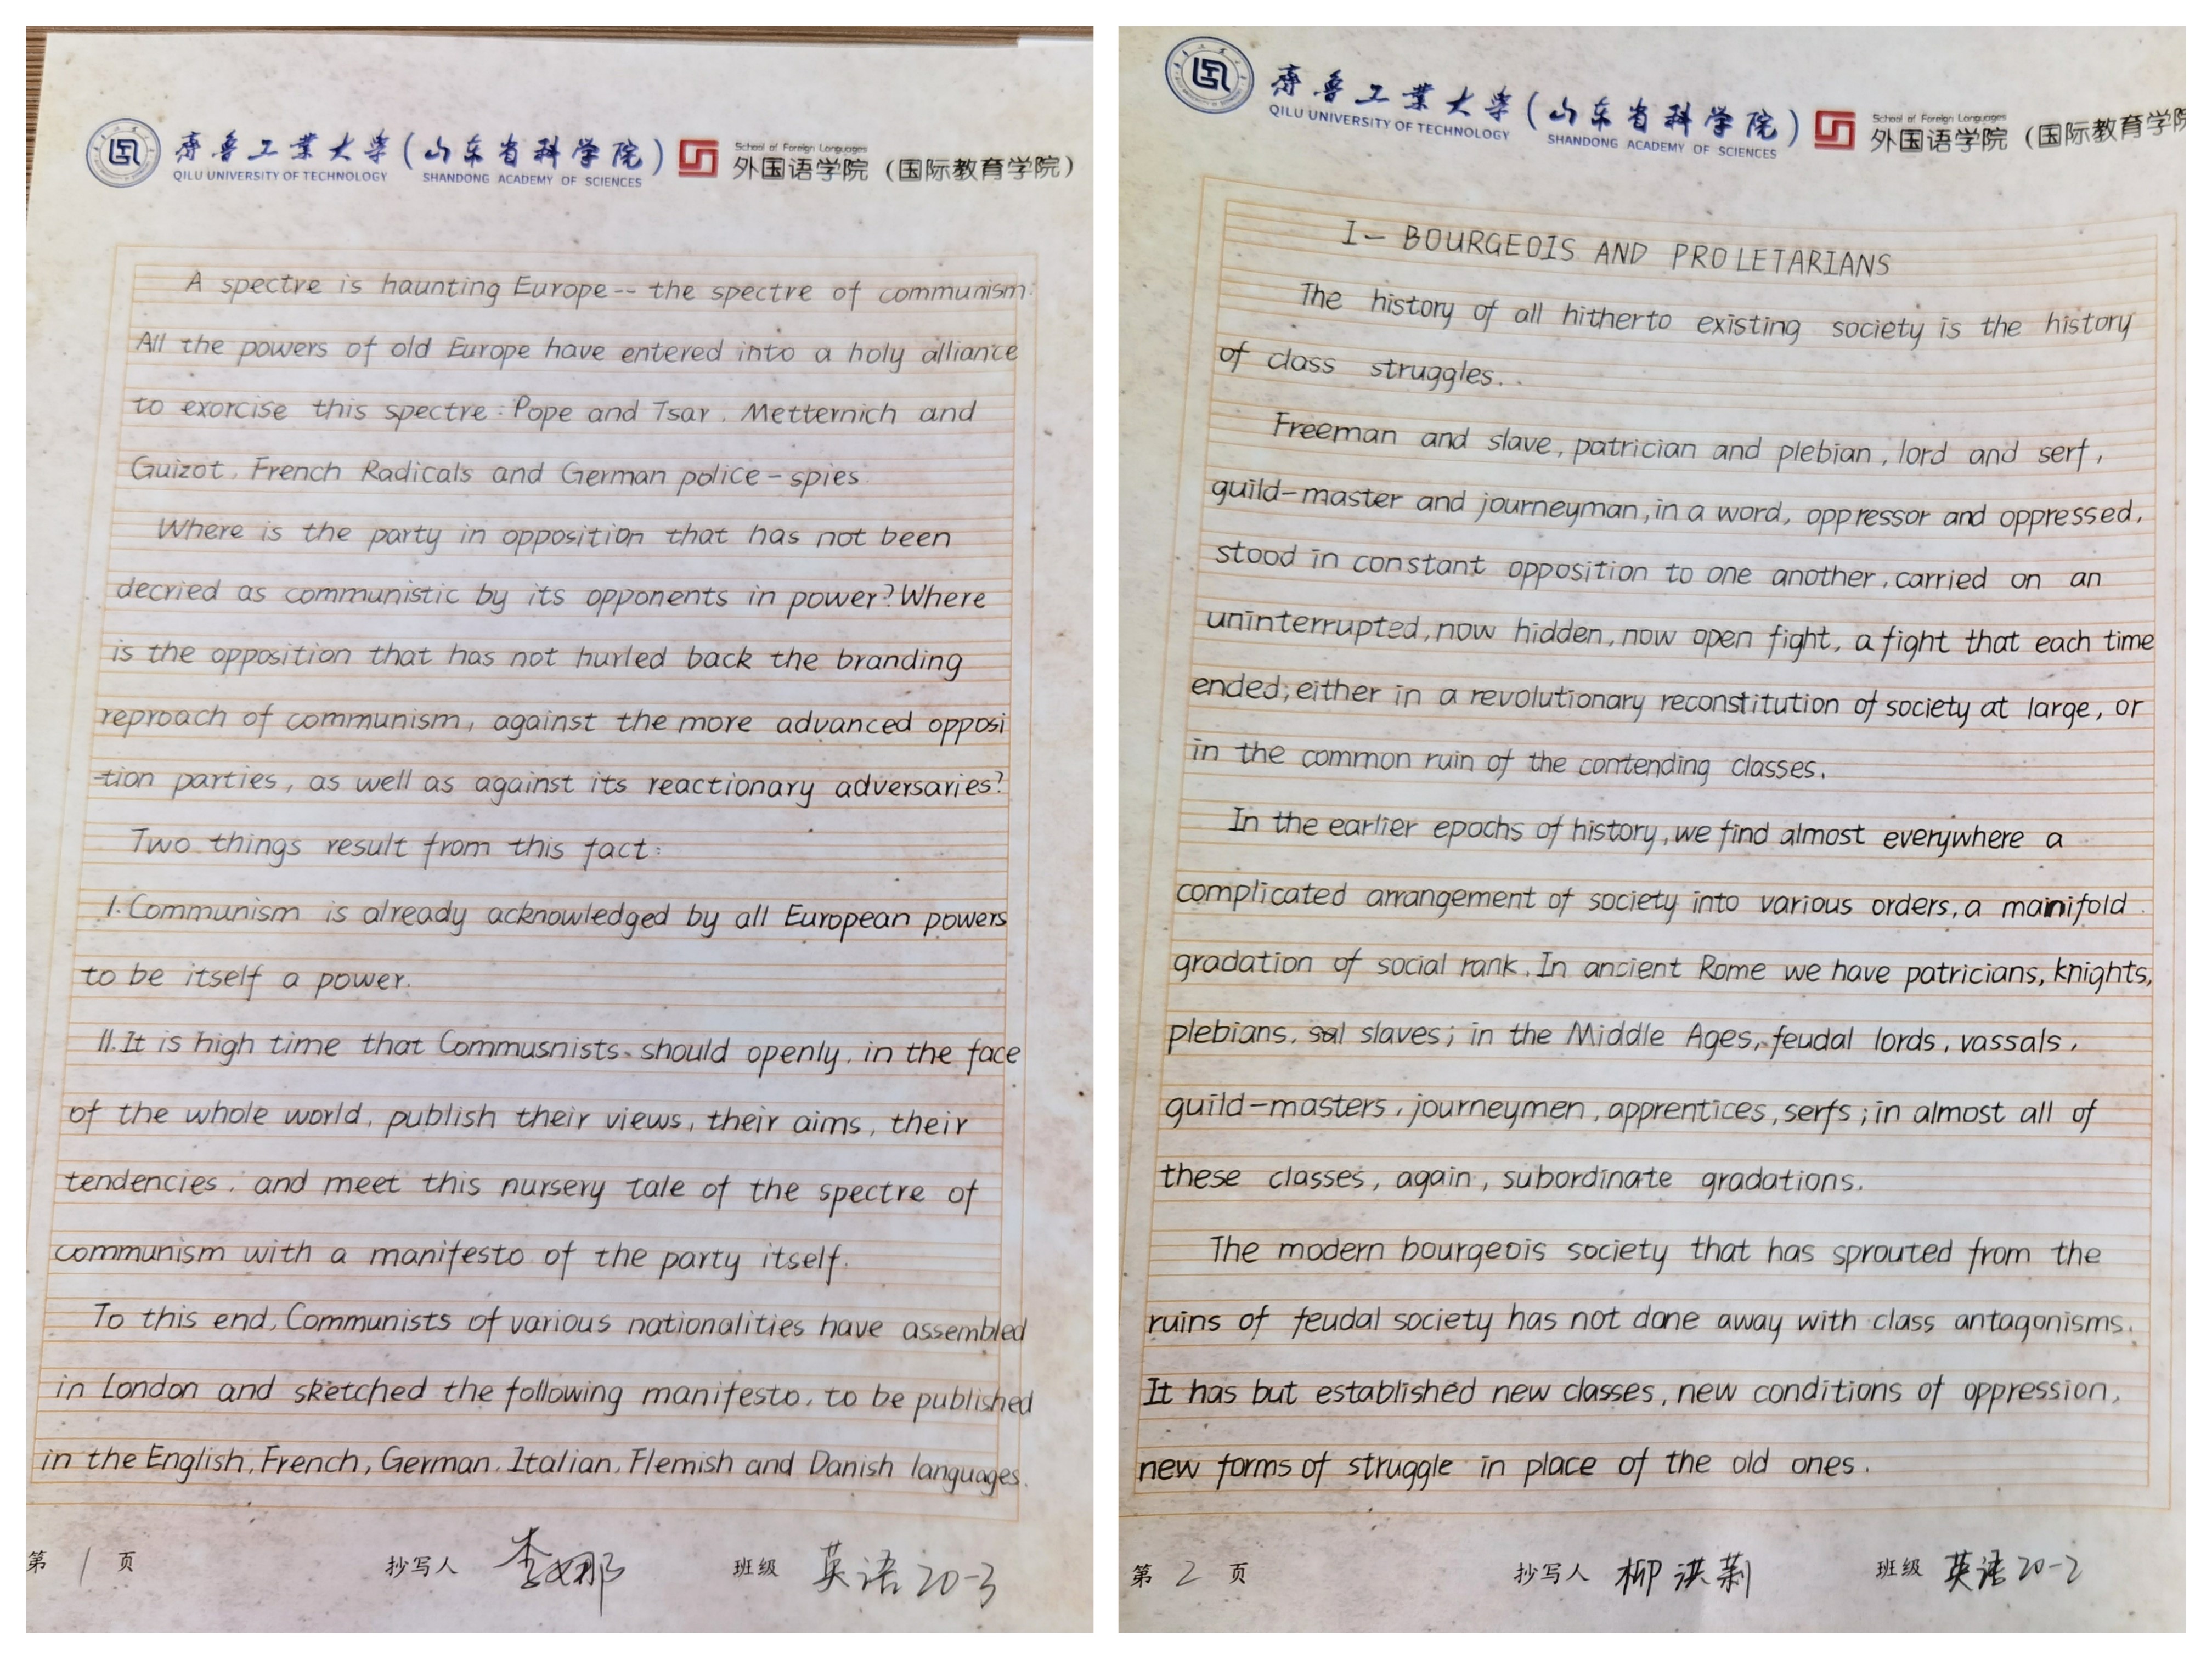 齐鲁工业大学(山东省科学院)
QILU UNIVERSITY OF TECHNOLOGY SHANDONG ACADEMY OF SCIENCES
School of Foreign Languages
外国语学院(国际教育学院)
A spectre is haunting Europe -- the spectre of communism.
All the powers of old Europe have entered into a holy alliance
to exorcise this spectre: Pope and Tsar, Metternich and
Guizot, French Radicals and German police-spies.
Where is the party in opposition that has not been
decried as communistic by its opponents in power? Where
is the opposition that has not hurled back the branding
reproach of communism, against the more advanced opposi
-tion parties, as well as against its reactionary adversaries?
Two things result from this fact:
I. Communism is already acknowledged by all European powers
to be itself a power.
II. It is high time that Commusnists should openly, in the face
of the whole world, publish their views, their aims, their
tendencies, and meet this nursery tale of the spectre of
communism with a manifesto of the party itself.
To this end, Communists of various nationalities have assembled
in London and sketched the following manifesto, to be published
in the English, French, German, Italian, Flemish and Danish languages.
第 1 页 抄写人 李娜 班级 英语20-3
齐鲁工业大学(山东省科学院)
QILU UNIVERSITY OF TECHNOLOGY SHANDONG ACADEMY OF SCIENCES
School of Foreign Languages
外国语学院(国际教育学院
I — BOURGEOIS AND PROLETARIANS
The history of all hitherto existing society is the history
of class struggles.
Freeman and slave, patrician and plebian, lord and serf,
guild-master and journeyman, in a word, oppressor and oppressed,
stood in constant opposition to one another, carried on an
uninterrupted, now hidden, now open fight, a fight that each time
ended, either in a revolutionary reconstitution of society at large, or
in the common ruin of the contending classes.
In the earlier epochs of history, we find almost everywhere a
complicated arrangement of society into various orders, a manifold
gradation of social rank. In ancient Rome we have patricians, knights,
plebians, slaves; in the Middle Ages, feudal lords, vassals,
guild-masters, journeymen, apprentices, serfs; in almost all of
these classes, again, subordinate gradations.
The modern bourgeois society that has sprouted from the
ruins of feudal society has not done away with class antagonisms.
It has but established new classes, new conditions of oppression,
new forms of struggle in place of the old ones.
第 2 页 抄写人 柳洪莉 班级 英语20-2